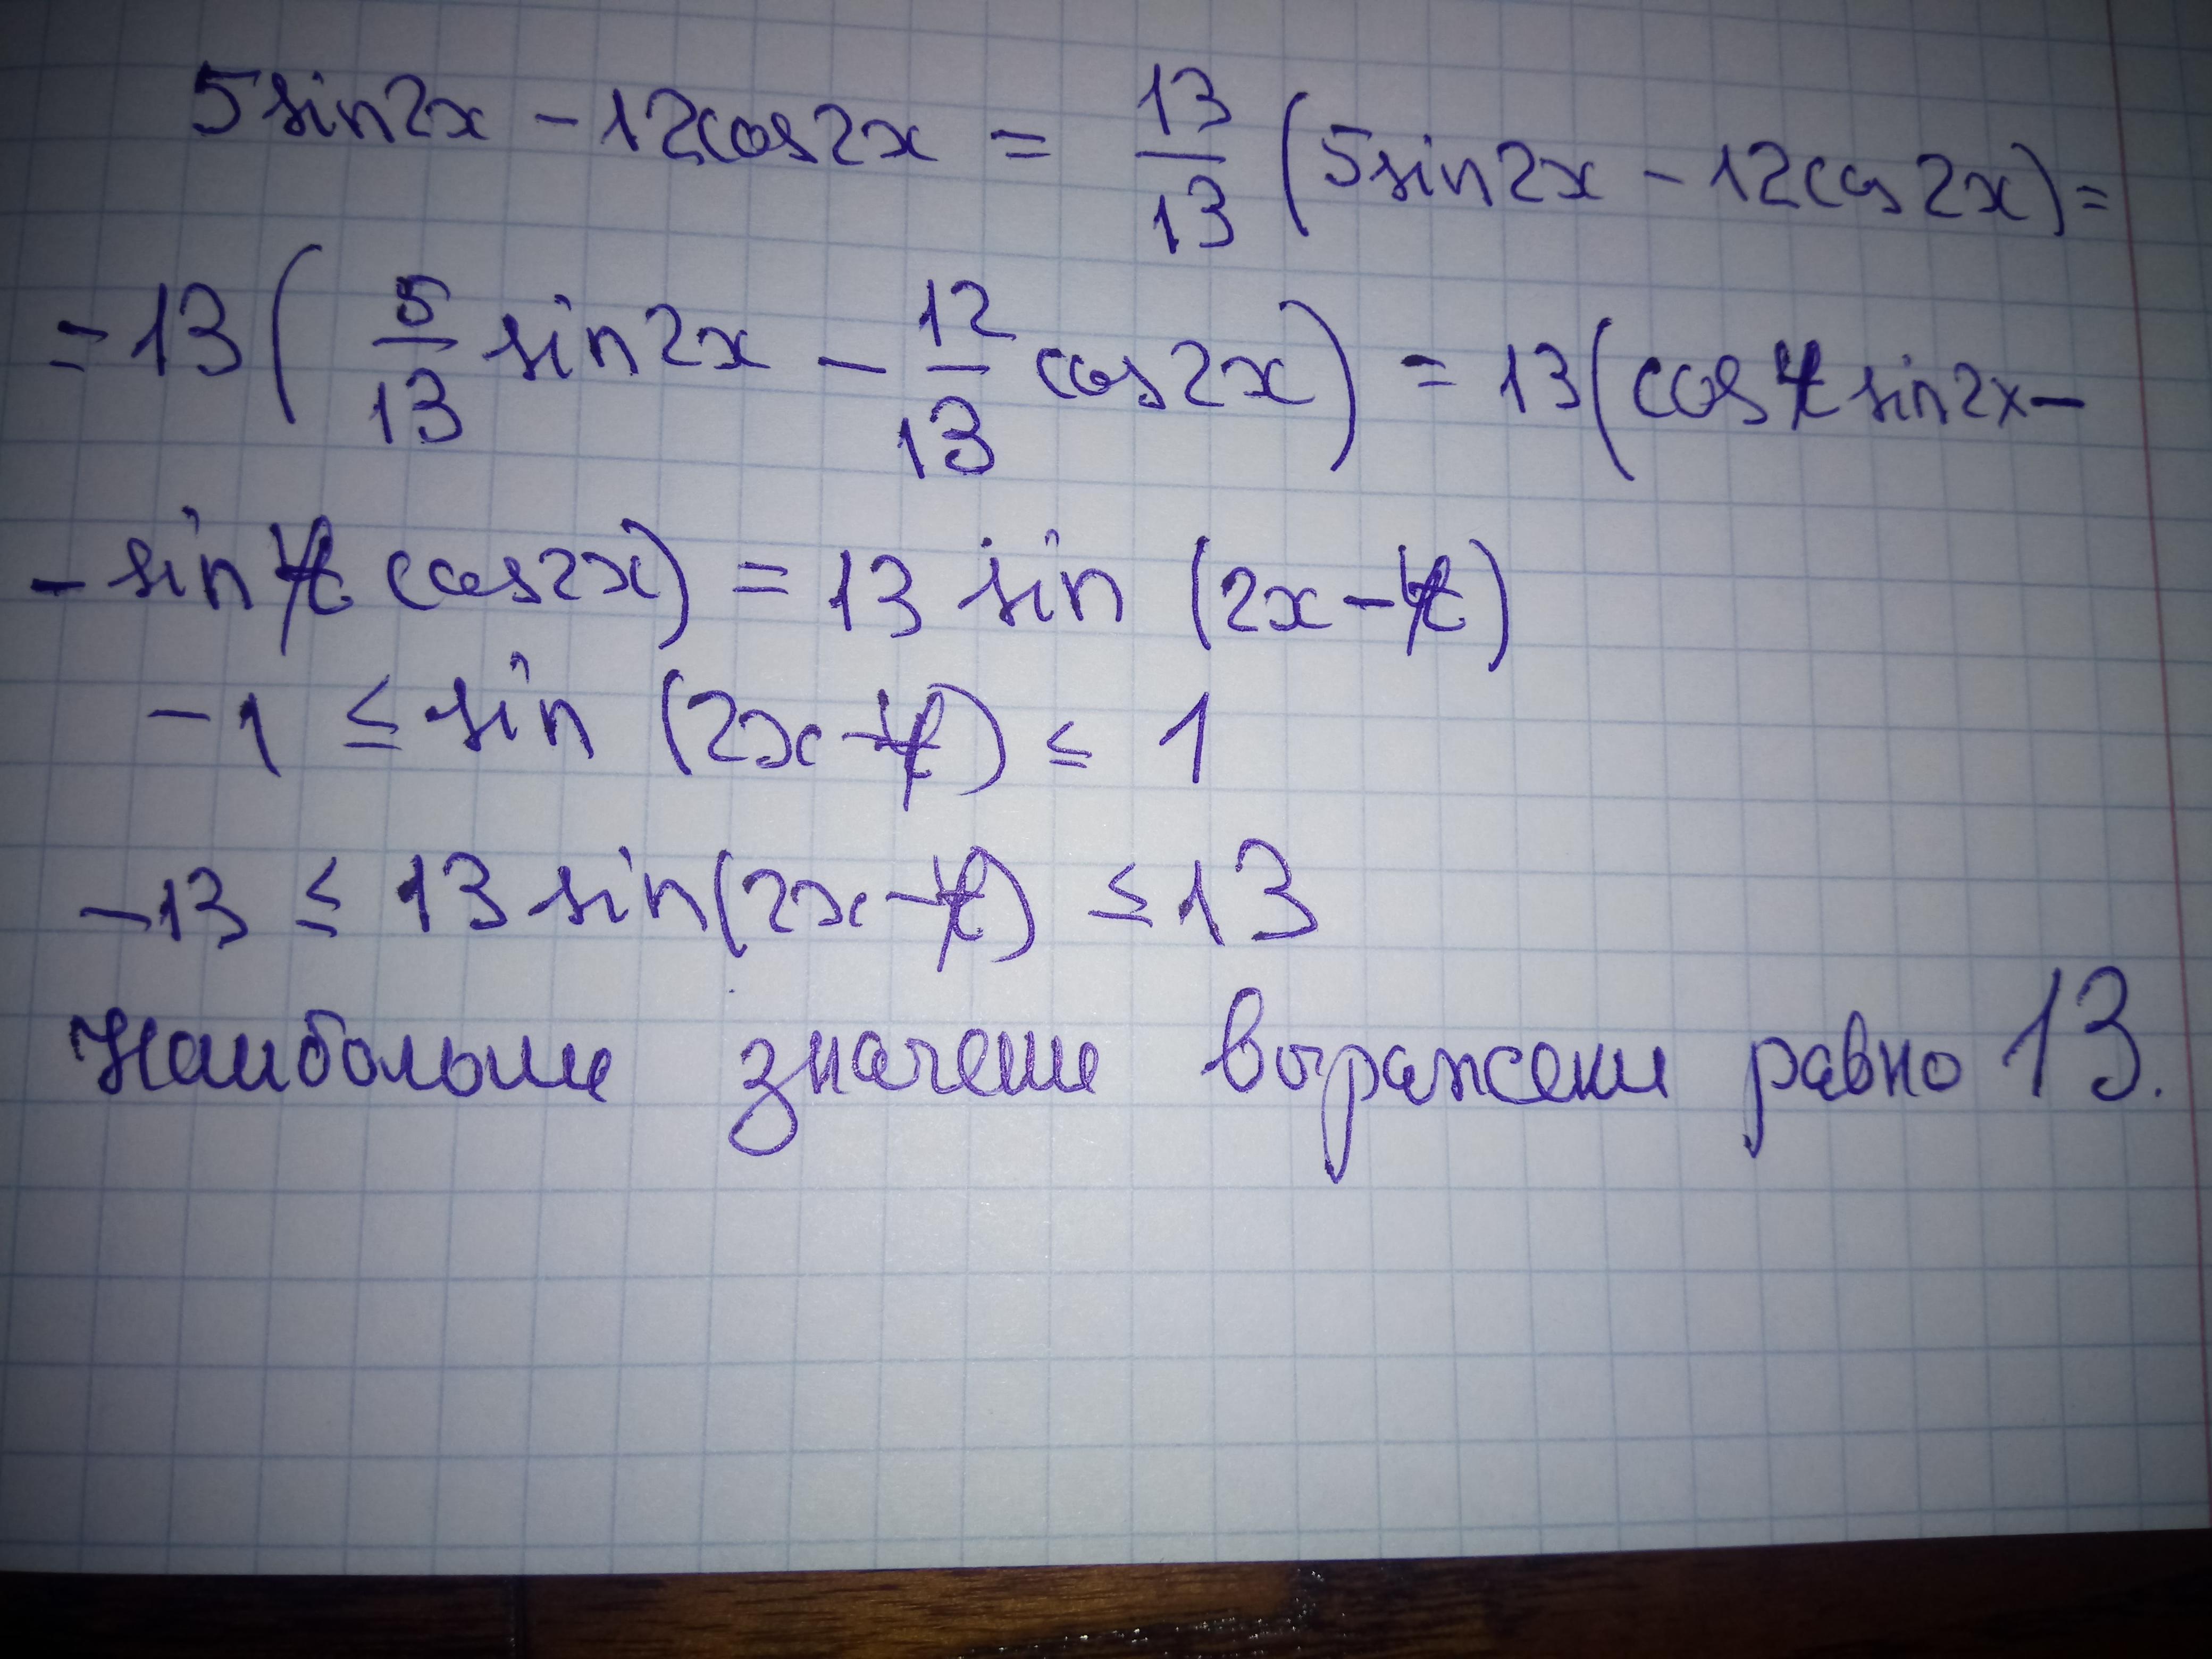 5sin2x - 12cos2x = 13/13 (5sin2x - 12cos2x) =
= 13 ( 5/13 sin2x - 12/13 cos2x ) = 13 (cos φ sin2x -
- sin φ cos2x) = 13 sin (2x - φ)
-1 ≤ sin (2x - φ) ≤ 1
-13 ≤ 13 sin(2x - φ) ≤ 13
Наибольше значени выражени равно 13.